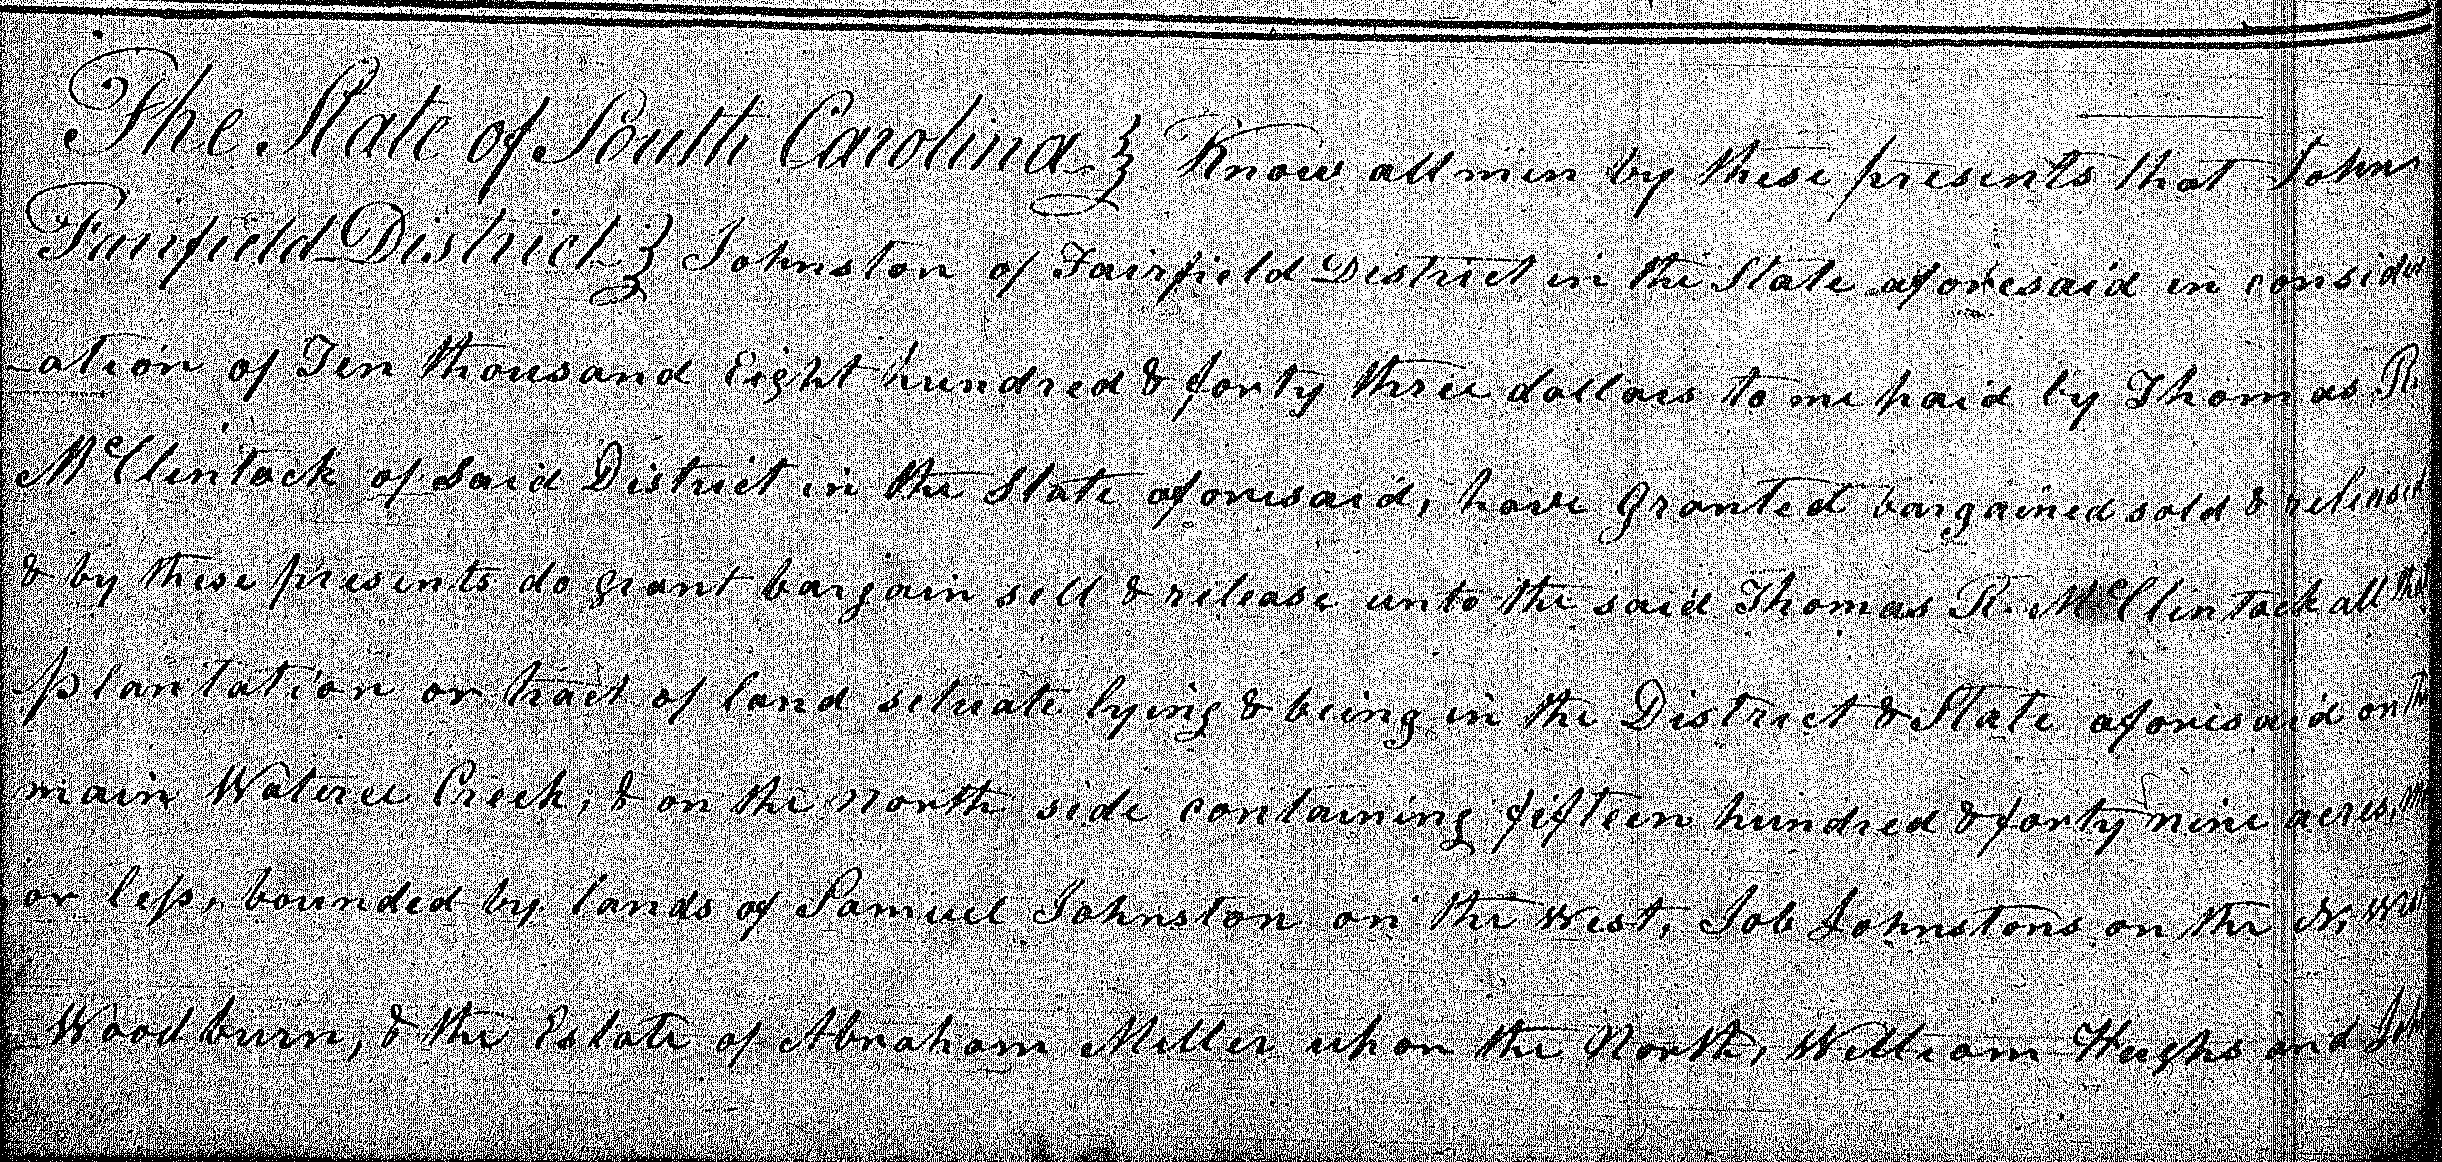 The State of South Carolina } Know all men by these presents that John
Fairfield District } Johnston of Fairfield District in the State aforesaid in consider
-ation of Ten thousand Eight hundred & forty three dollars to me paid by Thomas R.
McClintock of said District in the State aforesaid, have granted bargained sold & released
& by these presents do grant bargain sell & release unto the said Thomas R. McClintock all that
plantation or tract of land situate lying & being in the District & State aforesaid on the
main Wateree Creek, & on the north side containing fifteen hundred & forty nine acres,
or less, bounded by lands of Samuel Johnston on the west, Job Johnstons on the N,
Woodburn, & the Estate of Abraham Miller upon the North, William Hughs and